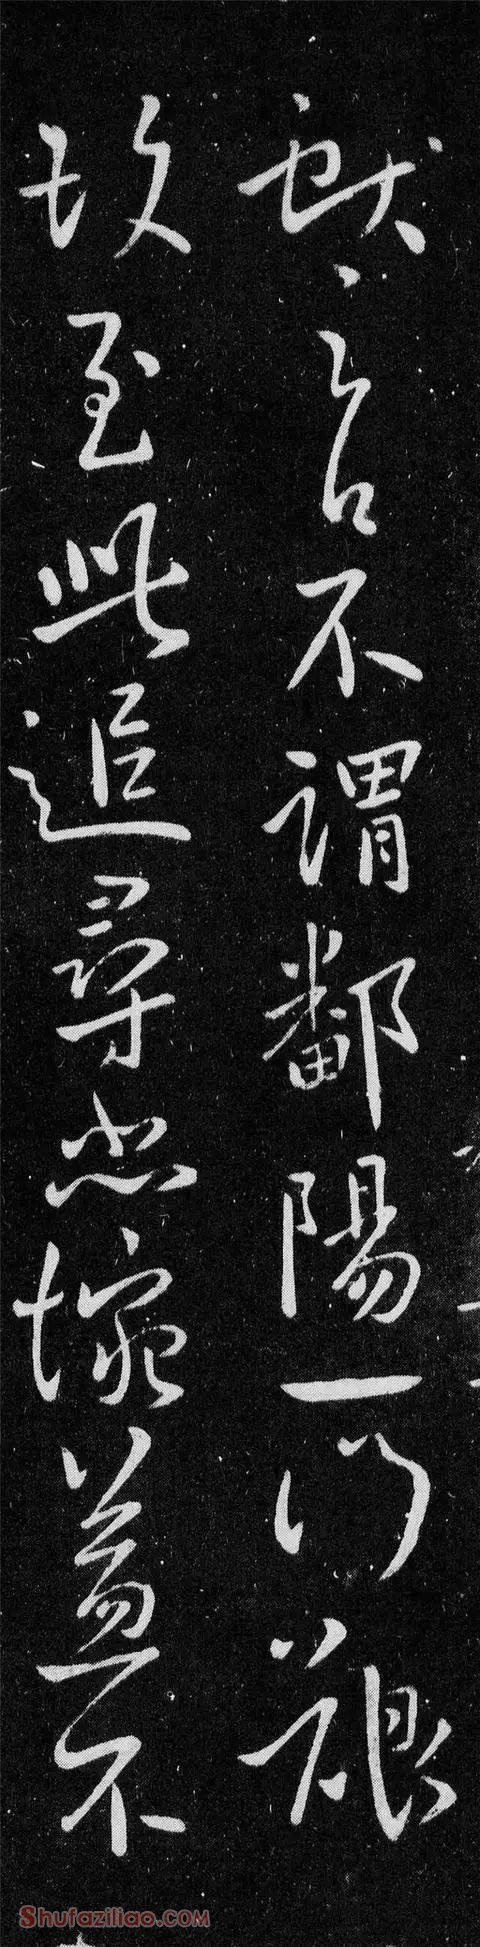 言不謂鄱陽一門艱
故至此追尋悲惋益不
Shufaziliao.com